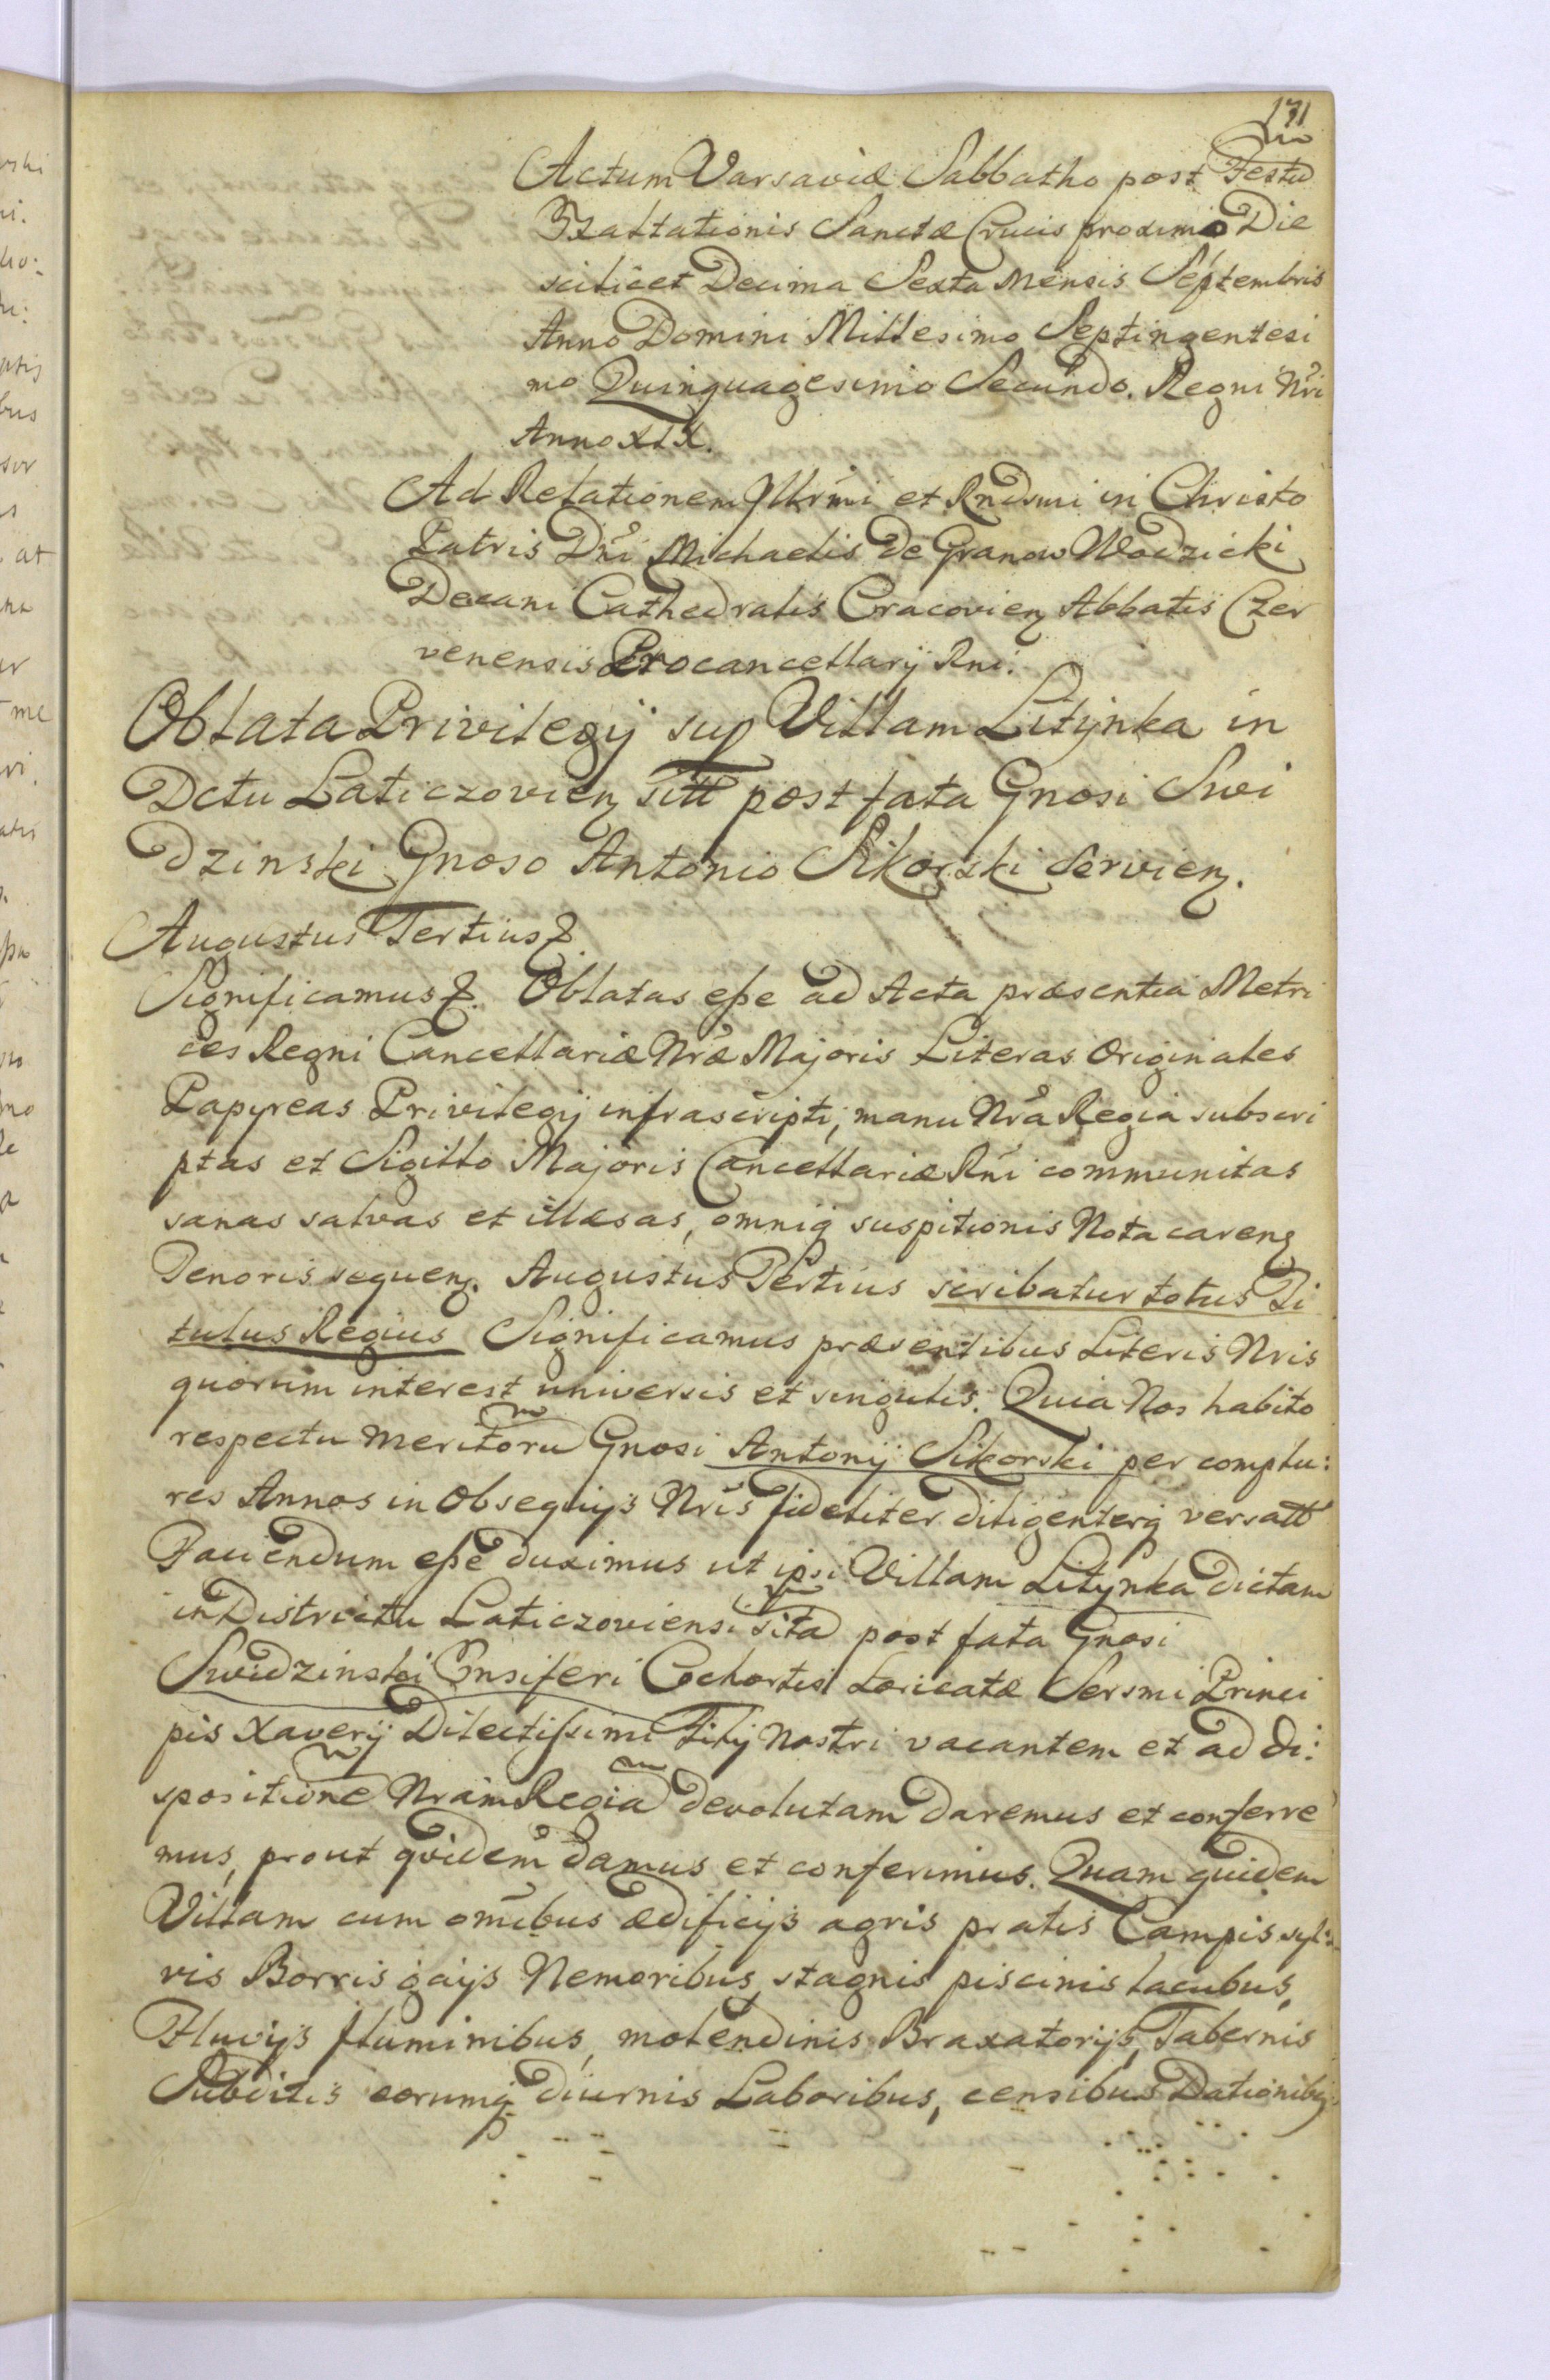 171
Actum Varsaviæ Sabbatho post Festu
Exaltationis Sanctæ Crucis proximo Die
scilicet Decima Sexta Mensis Septembris
Anno Domini Millesimo Septingentesi
mo Quinquagesimo Secundo. Regni Nri
Anno XIX.
Ad Relationem Illrmi et Rndsmi in Christo
Patris Dni Michaelis de Granow Wodzicki
Decani Cathedralis Cracovien Abbatis Czer
venensis Procancellarij Rni.
Oblata Privilegij sup Villam Litynka in
Dctu Laticzovien sitt post fata Gnosi Swi
dzinski Gnoso Antonio Sikorski servien.
Augustus Tertius &.
Significamus &. Oblatas esse ad Acta præsentia Metri
ces Regni Cancellariæ Nræ Majoris Literas Originales
Papyreas Privilegij infrascripti, manu Nra Regia subscri
ptas et Sigillo Majoris Cancellariæ Rni communitas
sanas salvas et illæsas, omniq suspitionis Nota caren
Tenoris sequen. Augustus Tertius scribatur totus Ti
tulus Regius Significamus præsentibus Literis Nris
quorum interest universis et singulis. Quia Nos habito
respectu meritoru Gnosi Antonij Sikorski per complu:
res Annos in Obsequijs Nris fideliter diligenterq versatt
Faciendum esse duximus ut ipsi Villam Litynka dictam
in Districtu Laticzoviensi sita post fata Gnosi
Swidzinski Ensiferi Cohortis Loricatæ Sersmi Princi
pis Xaverij Dilectissimi Filij Nostri vacantem et ad di:
spositione Nram Regia devolutam daremus et conferre
mus, prout quidem damus et conferimus. Quam quidem
Villam cum omibus ædificijs agris pratis Campis syl:
vis Borris gaijs Nemoribus, stagnis piscinis lacubus,
Fluvijs fluminibus, molendinis Braxatorijs, Tabernis
Subditis eorumq diurnis Laboribus, censibus Dationibq